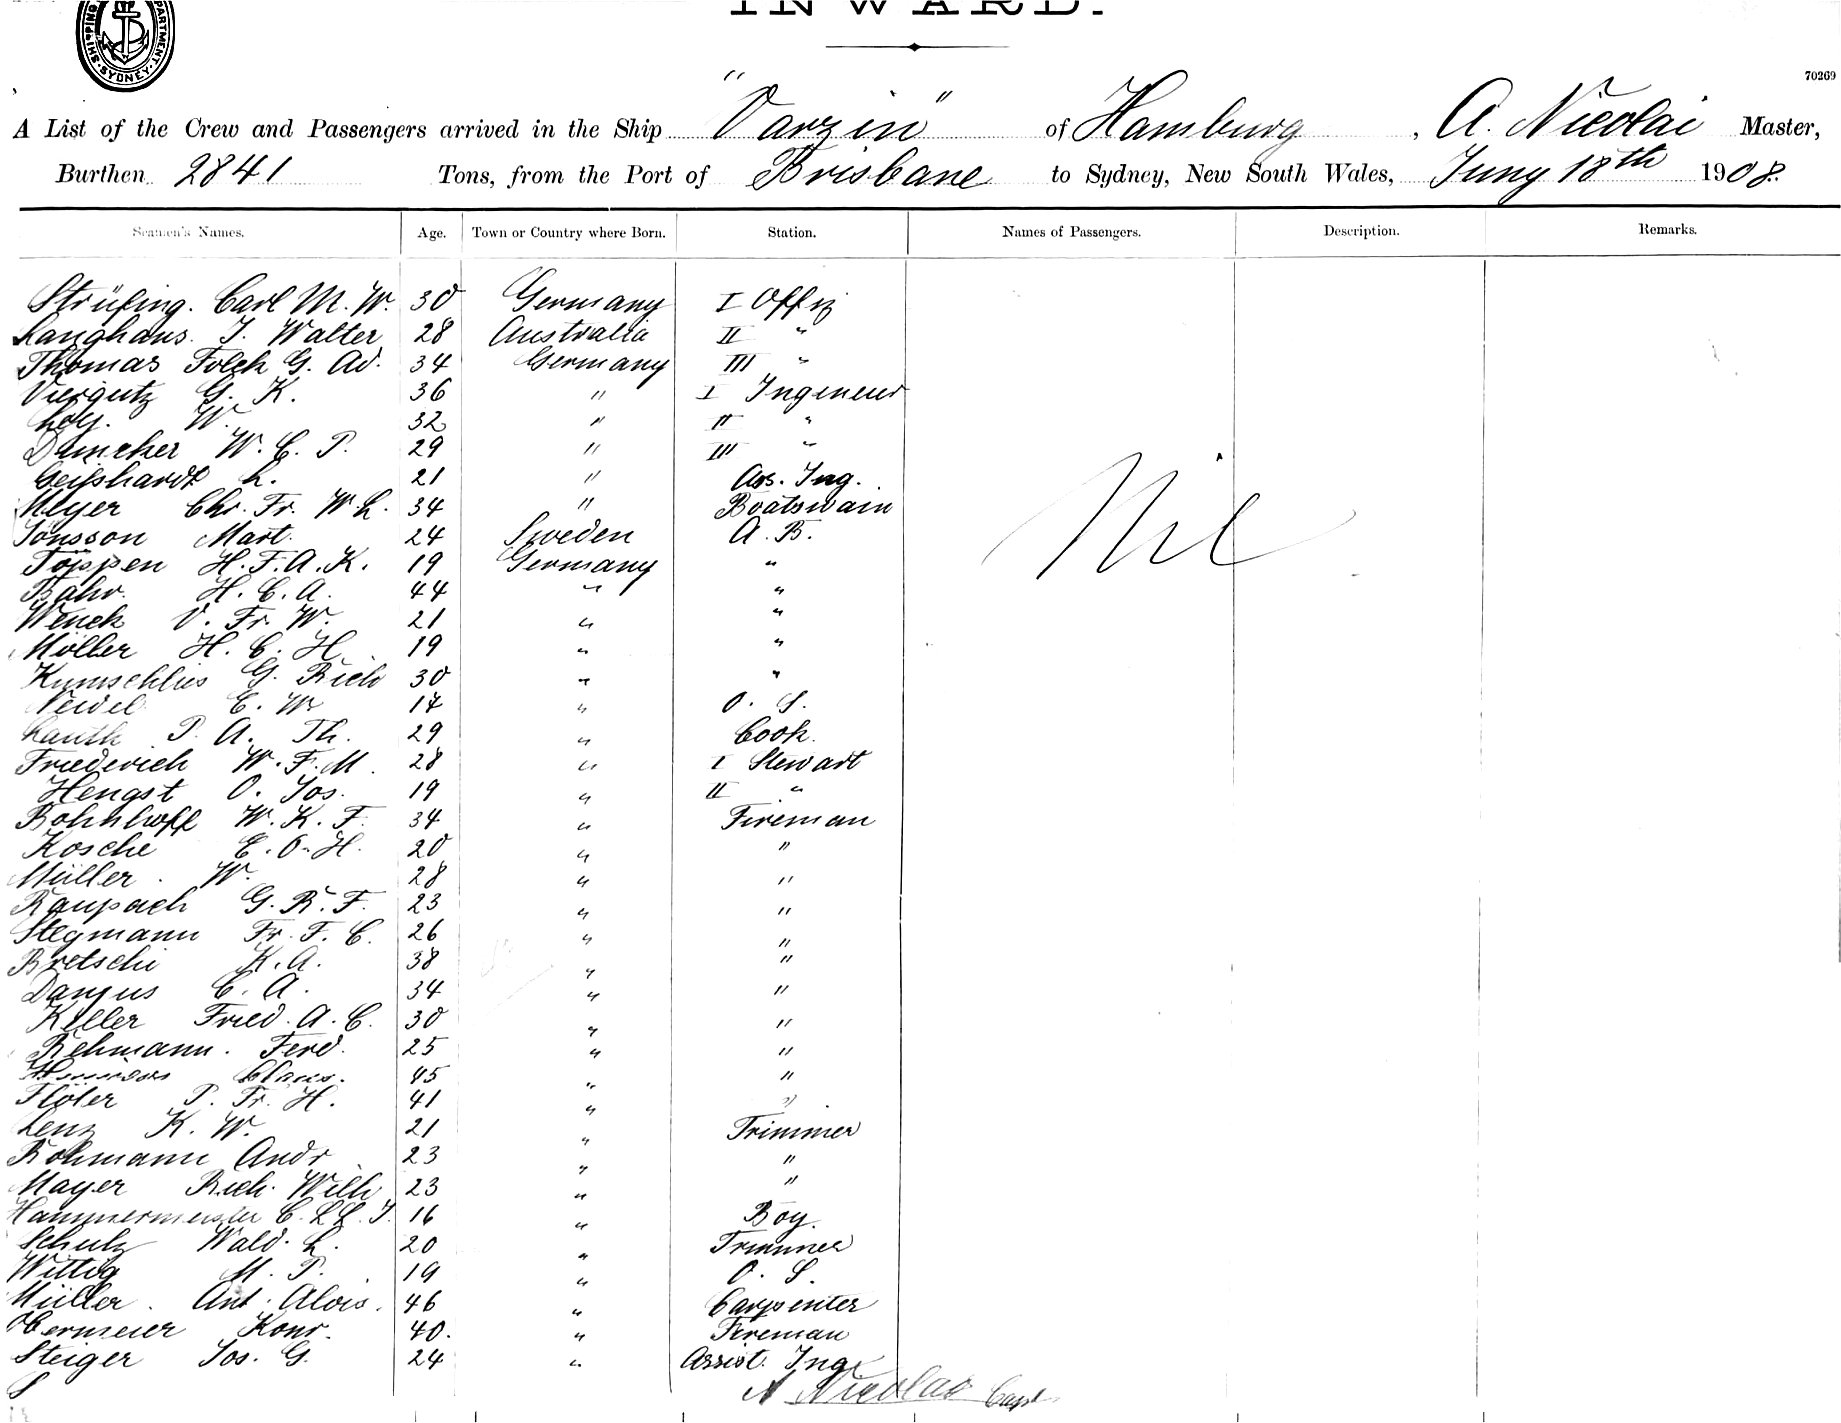 INWARD.
SHIPPING DEPARTMENT. SYDNEY.
70269
A List of the Crew and Passengers arrived in the Ship "Varzin" of Hamburg, A. Nicolai Master,
Burthen 2841 Tons, from the Port of Brisbane to Sydney, New South Wales, Juny 18th 1908.
Seamen's Names. Age. Town or Country where Born. Station. Names of Passengers. Description. Remarks.
Strüfing. Carl M. W. 30 Germany I Offiz
Langhans. J. Walter 28 Australia II "
Thomas Folch G. Ad. 34 Germany III "
Viergutz G. K. 36 " I Ingenieur
Loy. W. 32 " II "
Damcher W. C. P. 29 " III "
Geißhardt L. 21 " Ass. Ing.
Meyer Chr. Fr. W. L. 34 " Boatswain
Jonsson Mart. 24 Sweden A. B.
Töppen H. F. A. K. 19 Germany "
Bahr. H. C. A. 44 " "
Wenck V. Fr. W. 21 " "
Möller H. C. H. 19 " "
Kumschlies G. Rich 30 " "
Neidel E. W. 17 " O. S.
Lauth P. A. Th. 29 " Cook.
Friederich W. F. M. 28 " I Stewart
Hengst O. Jos. 19 " II "
Bohnhoff W. K. F. 34 " Fireman
Kosche E. O. H. 20 " "
Müller. W. 28 " "
Raupach G. R. F. 23 " "
Stegmann Fr. F. C. 26 " "
Bretschi K. A. 38 " "
Danjus C. A. 34 " "
Keller Fried. A. C. 30 " "
Rehmann. Ferd. 25 " "
Claus. 45 " "
Flöter P. Fr. H. 41 " "
Lenz K. W. 21 " Trimmer
Rohmann Andr 23 " "
Mayer Rich. Wilh 23 " "
Hammermeister C. L. L. J. 16 " Boy.
Schulz Wald. L. 20 " Trimmer
Wittig M. P. 19 " O. S.
Müller. Ant. Alois. 46 " Carpenter
Obermeier Konr. 40. " Fireman
Steiger Jos. G. 24 " Assist. Ing.
Nil
A Nicolai Capt.